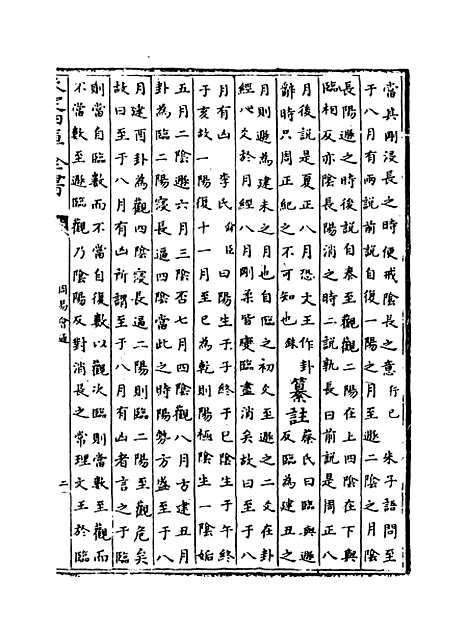 當其剛浸長之時便戒陰長之意行已　朱子語問至
于八月有兩說前說自復一陽之月至遯二陰之月陰
長陽遯之時後說自泰至觀觀二陽在上四陰在下與
臨相反亦陰長陽消之時二說孰長曰前說是周正八
月後說是夏正八月恐文王作卦
辭時只周正紀之不可知也錄
纂註蔡氏曰臨與遯
反臨為建丑之
月則遯為建未之月也自臨之初爻至遯之二爻在卦
經八爻於月經八月剛柔皆變臨盡消矣故曰至于八
月有凶　李氏舜臣曰陽生于子終于巳陰生于午終
于亥故一陽復十一月至巳為乾則陽極陰生一陰姤
五月二陰遯六月三陰否七月四陰觀八月方建丑月
卦為臨二陽寖長逼四陰當此之時陽勢方盛至于八
月建酉卦為觀四陰寖長逼二陽則臨二陽至觀危矣
故曰至于八月有凶所謂至于八月有凶者言之于臨
則當自臨數而不當自復數以觀次臨則當數至觀而
不當數至遯臨觀乃陰陽反對消長之常理文王於臨
周易會通
二